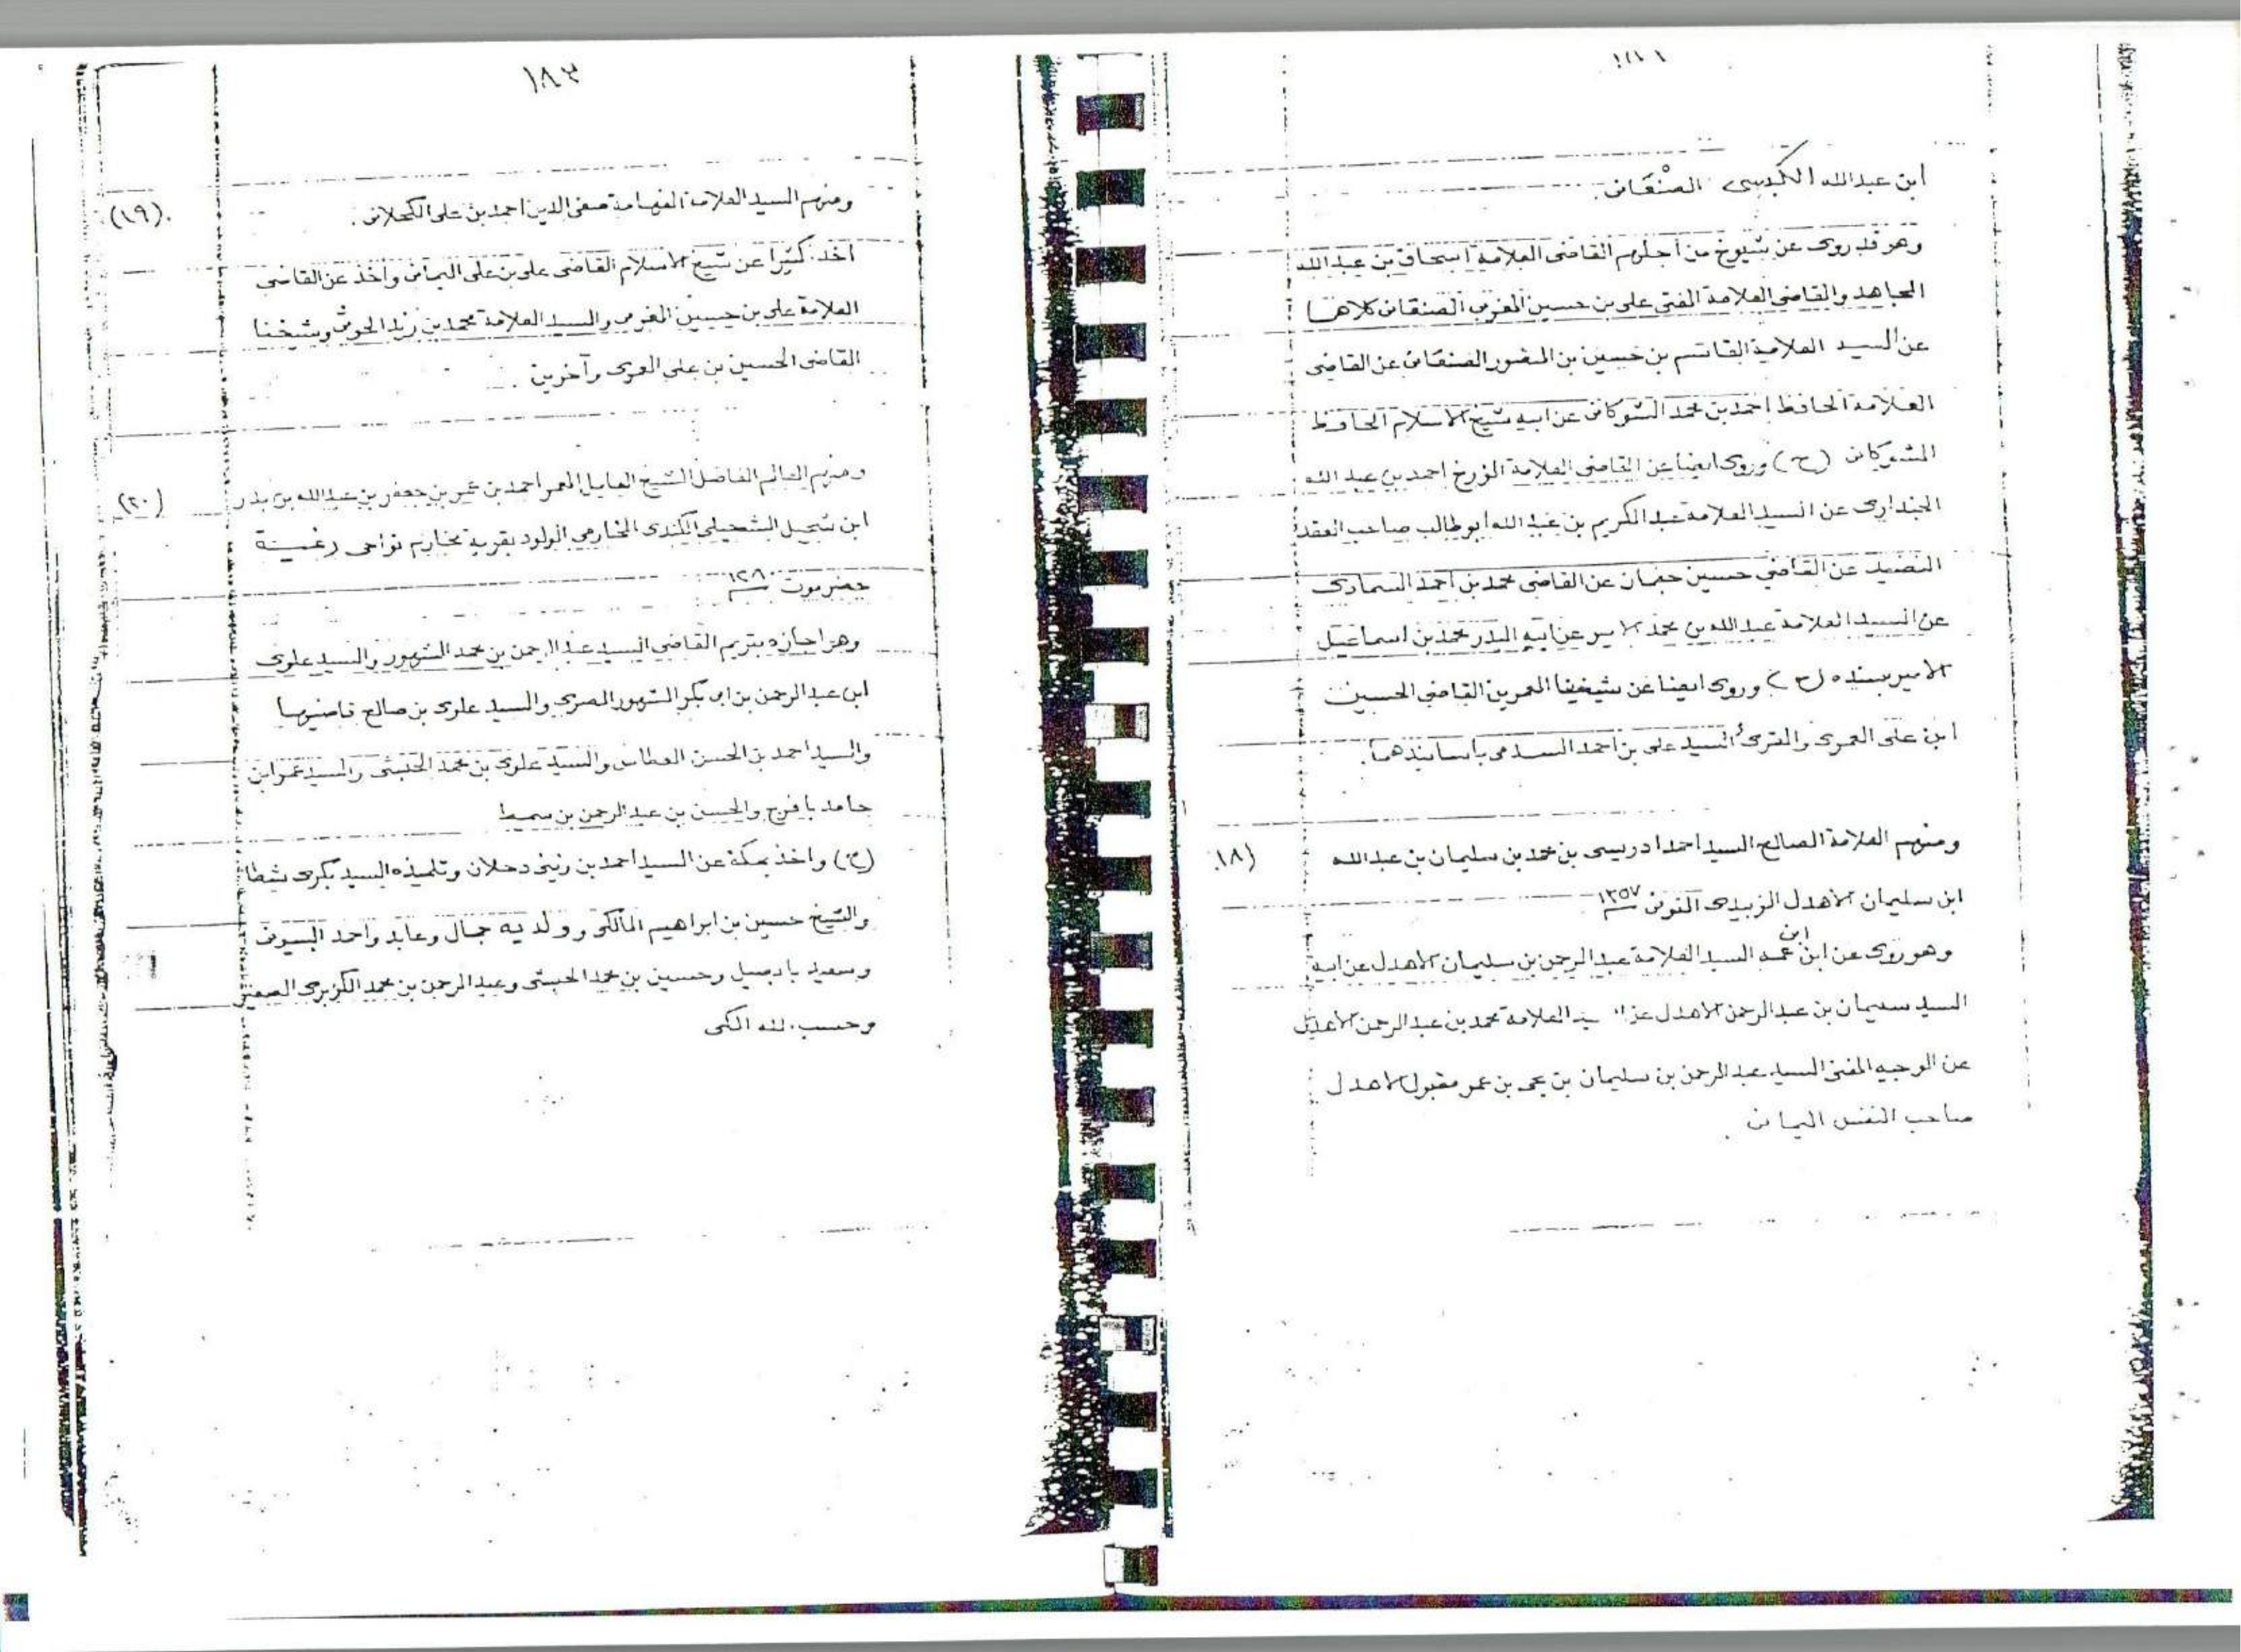 ابن عبدالله الكبسى الصنعانى
وهو قد روى عن شيوخ من أجلهم القاضى العلامة اسحاق بن عبدالله
المجاهد والقاضى العلامة المفتى على بن حسين المغربى الصنعانى كلاهما
عن السيد العلامة القاسم بن حسين بن المنصور الصنعانى عن القاضى
العلامة الحافظ احمد بن محمد الشوكانى عن ابيه شيخ الاسلام الحافظ
الشوكانى (ح) وروى ايضا عن القاضى العلامة المؤرخ احمد بن عبد الله
الجندارى عن السيد العلامة عبد الكريم بن عبد الله ابو طالب صاحب العقد
النضيد عن القاضي حسين عن القاضى محمد بن أحمد السماوى
عن السيد العلامة عبدالله بن محمد الامير عن ابيه البدر محمد بن اسماعيل
الامير بسنده (ح) وروى ايضا عن شيخنا المعمرين القاضى الحسين
ابن على العمرى والمقرئ السيد على بن احمد السدمى بأسانيدهما.
ومنهم العلامة الصالح السيد احمد ادريسى بن محمد بن سليمان بن عبدالله (١٨)
ابن سليمان الاهدل الزبيدى المتوفى سنة ١٣٥٧
وهو روى عن ابن ابن عمه السيد العلامة عبد الرحمن بن سليمان الاهدل عن ابيه
السيد سليمان بن عبد الرحمن الاهدل عن السيد العلامة محمد بن عبد الرحمن الاهدل
عن الوجيه المفتى السيد عبد الرحمن بن سليمان بن يحيى بن عمر مقبول الاهدل
صاحب النفس اليمانى .
١٨٣
ومنهم السيد العلامة الفهامة صفى الدين احمد بن على الكحلانى . (١٩)
أخذ كثيرا عن شيخ الاسلام القاضى على بن على اليمانى وأخذ عن القاضى
العلامة على بن حسين المغربى والسيد العلامة محمد بن زيد الحوثى وشيخنا
القاضى الحسين بن على العمرى وآخرين .
ومنهم العالم الفاضل الشيخ المعمر احمد بن عمر بن جعفر بن عبدالله بن بدر (٢٠)
ابن الكندى المخارمى المولود بقرية مخارم نواحى
حضرموت سنة ١٢٨٠
وهو اجازه بتريم القاضى السيد عبد الرحمن بن محمد المشهور والسيد علوى
ابن عبد الرحمن بن ابى بكر المشهور والسيد علوى بن صالح
والسيد احمد بن الحسن العطاس والسيد علوى بن محمد الحبشى والسيد عمر ابن
حامد بافرج والحسن بن عبد الرحمن بن سميط
(ح) واخذ بمكة عن السيد احمد بن زينى دحلان وتلميذه السيد بكرى شطا
والشيخ حسين بن ابراهيم المالكى وولديه جمال وعابد واحمد
وسعيد بابصيل وحسين بن محمد الحبشى وعبد الرحمن بن محمد الكزبرى الصغير
وحسب الله المكى